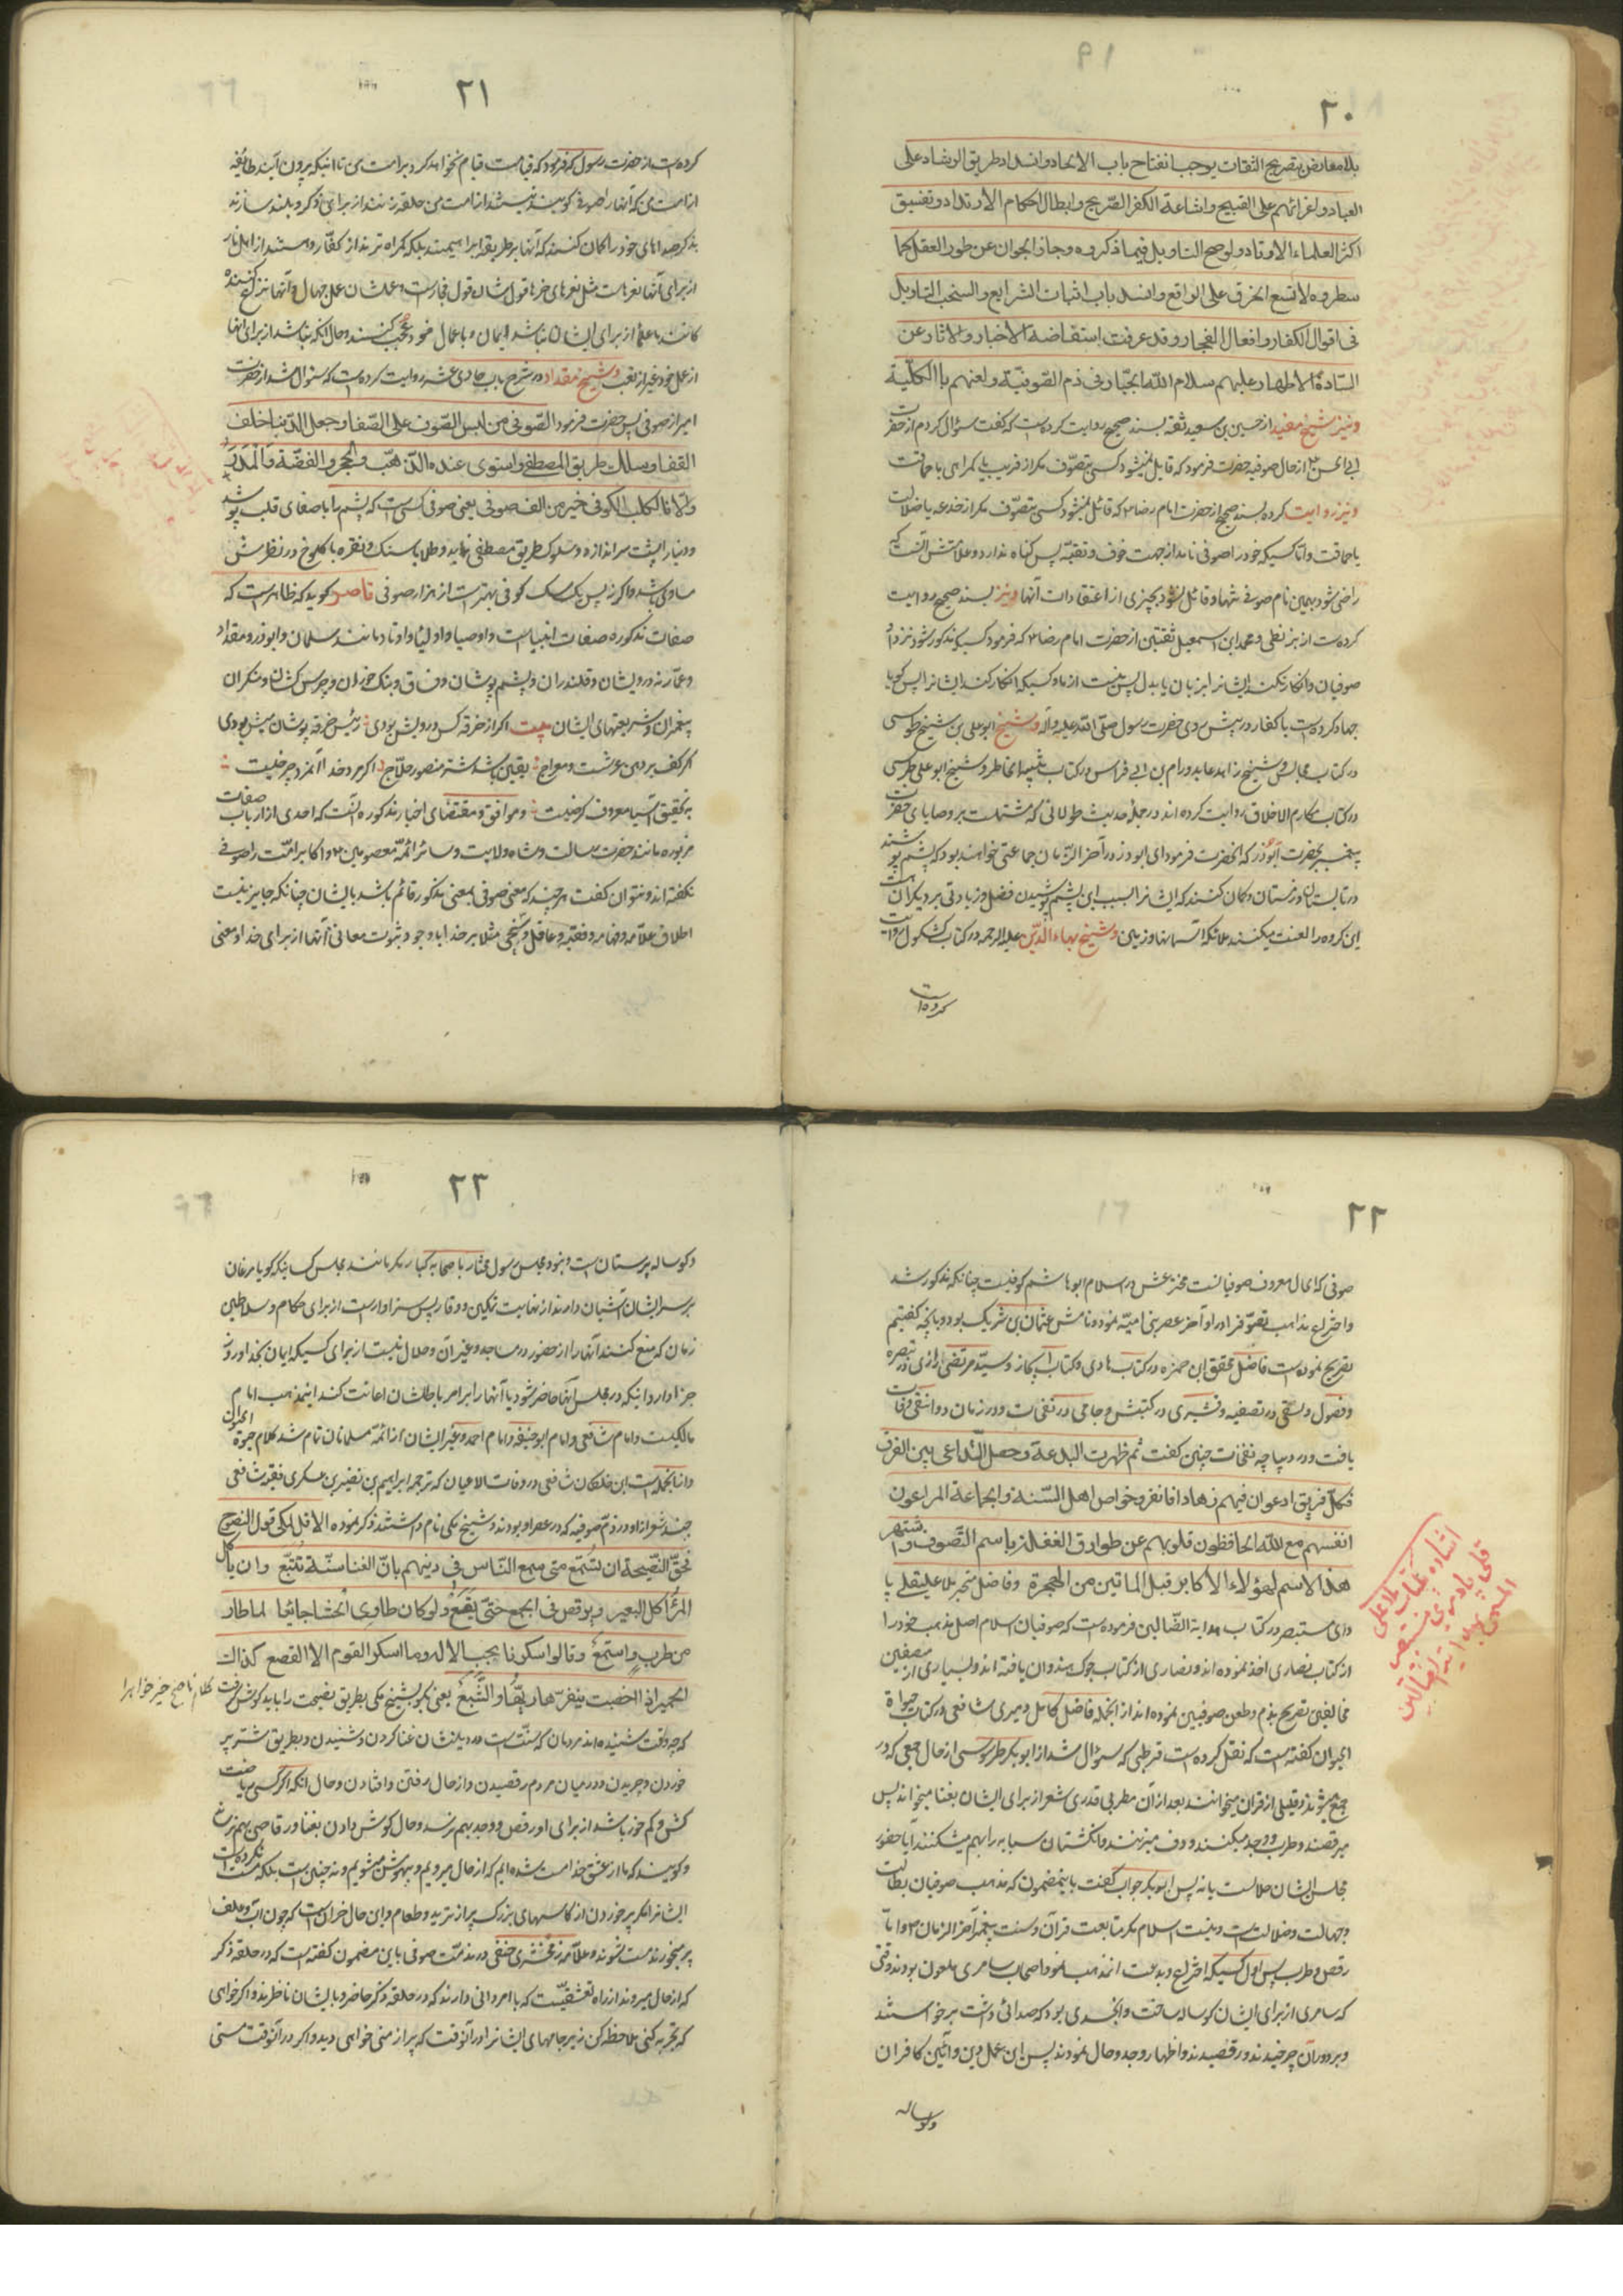 ۲۰
بلا معارض بتصریح الثقات یوجب انفتاح باب الالحاد وانسداد طریق الرشاد علی
العباد واغرائهم علی القبیح واشاعة الکفر الصّریح وابطال احکام الارتداد وتفسیق
اکثر العلماء الاوتاد ولو صح التاویل فیما ذکروه وجاز الجوان عن طور العقل کما
سطروه لا تسع الخرق علی الواقع وانسد باب اثبات الشرایع والسنحب التاویل
فی اقوال الکفار وافعال الفجار وقد عرفت استفاضة الاخبار والآثار عن
السّادة الاطهار علیهم سلام اللّه الجبّار فی ذم الصّوفیّة ولعنهم بالکلّیة
ونیز شیخ مفید از حسین بن سعید ثقه بسند صحیح روایت کرده است که گفت سؤال کردم از حضرت
ابی الحسن ع از حال صوفیه حضرت فرمود که قایل نمیشود کسی بتصوّف مکر از فریب یا کمراهی یا حماقت
ونیز روایت کرده بسند صحیح از حضرت امام رضا ع که قائل نمیشود کسی بتصوّف مکر از خدعه یا ضلالت
یا حماقت وامّا کسیکه خود را صوفی نامد از جهت خوف وتقیّه پس کناه ندارد وعلامتش آنست که
راضی شود بهمین نام صوفی تنها وقائل نشود بچیزی از اعتقادات آنها ونیز بسند صحیح روایت
کرده است از بزنطی ومحمد ابن اسمعیل ثقتین از حضرت امام رضا ع که فرمود کسیکه مذکور شود نزد او
صوفیان وانکار نکند ایشانرا بزبان یا بدل پس نیست از ما وکسیکه انکار کند ایشانرا پس کویا
جهاد کرده است با کفار در پیش روی حضرت رسول صلّی اللّه علیه وآله وشیخ ابو علی بن شیخ طوسی
در کتاب مجالس وشیخ زاهد عابد ورام بن ابی فراس در کتاب تنبیه الخاطر وشیخ ابو علی طبرسی
در کتاب مکارم الاخلاق روایت کرده اند در جملهٔ حدیث طولانی که مشتملست بر وصایای حضرت
پیغمبر بحضرت ابوذر که آنحضرت فرمود ای ابوذر در آخر الزّمان جماعتی خواهند بود که پشم پوشند
در تابستان وزمستان وکمان کنند که ایشانرا بسبب این پشم پوشیدن فضل وزیادتی بر دیکران است
این کروه را لعنت میکنند ملائکه آسمانها وزمین وشیخ بهاء الدّین علیه الرحمه در کتاب کشکول روایت
کرده است
۲۱
کرده است از حضرت رسول که فرمود که قیامت قیام نخواهد کرد بر امت من تا اینکه بیرون آیند طایفه
از امت من که آنها را صوفی کویند نیستند از امت من حلقه زنند از برای ذکر وبلند سازند
بذکر صداهای خود را کمان کنند که آنها بر طریقه ابراهیمند بلکه کمراه ترند از کفّار وهستند از اهل نار
از برای آنها نعره است مثل نعرهای خرها قول ایشان قول فجار است وعملشان عمل جهال وآنها نزاع کننده
کانند با علما از برای ایشان نباشد ایمان وباعمال خود عجب کنند وحال آنکه نباشد از برای آنها
از عمل خود غیر از تعب وشیخ مقداد در شرح باب حادی عشر روایت کرده است که سئوال شد از حضرت
امیر از صوفی پس حضرت فرمود الصّوفی من لبس الصّوف علی الصّفا وجعل الدّنیا خلف
القفا وسلک طریق المصطفی واستوی عنده الذّهب والحجر والفضّة والمدر
والّا فالکلب الکوفی خیر من الف صوفی یعنی صوفی کسی است که پشم را با صفای قلب پوشد
ودنیا را پشت سر اندازد وسلوک طریق مصطفی نماید وطلا با سنک ونقره با کلوخ در نظرش
مساوی باشد واکر نه پس یک سک کوفی بهتر است از هزار صوفی قاصر کوید که ظاهر است که
صفات مذکوره صفات انبیاست واوصیا واولیا واوتاد مانند سلمان وابوذر ومقداد
وعمّار نه درویشان وقلندران وپشم پوشان وفسّاق وبنک خوران وچرس کشان ومنکران
پیغمبران وشریعتهای ایشان بیت اکر از خرقه کس درویش بودی رئیس خرقه پوشان میش بودی
اکر کف بر دهن عرشت ومعراج یقین باشد شتر منصور حلّاج اکر مرد خدا آنمرد چرخیست
بتحقیق آسیا معروف کرخیست وموافق ومقتضای اخبار مذکوره آنست که احدی از ارباب صفات
مزبوره مانند حضرت رسالت وشاه ولایت وسائر ائمّه معصومین ع واکابر امّت را صوفی
نکفته اند ونتوان کفت هر چند که معنی صوفی بمعنی مذکور قائم باشد بایشان چنانکه جایز نیست
اطلاق علّامه وفهامه وفقیه وعاقل وسخی مثلا بر خدا با وجود ثبوت معانی آنها از برای خدا ومعنی
۲۲
صوفی که الحال معروف صوفیانست مخترعش در اسلام ابو هاشم کوفیست چنانکه مذکور شد
واختراع مذاهب تصوّف را در اواخر عصر بنی امیّه نموده ونامش عثمان بن شریک بود وبآنچه کفتیم
تصریح نموده است فاضل محقق ابن حمزه در کتاب هادی وکتاب ایجاز وسیّد مرتضی رازی در تبصره
وفصول وسلمی در تصفیه وقشیری در کتبش وجامی در نفحات ودر زمان دوانقی وفات
یافت ودر دیباچه نفحات چنین کفت ثم ظهرت البدعة وحصل التّداعی بین الفرق
فکلّ فریق ادعوا ان فیهم زهادا فانفرد خواص اهل السّنة والجماعة المراعون
انفسهم مع اللّه الحافظون قلوبهم عن طوارق الغفلة باسم التّصوف واشتهر
هذا الاسم لهؤلاء الاکابر قبل الماتین من الهجرة وفاضل متبحر ملا علیقلی پا
دری مستبصر در کتاب هدایة الضّالین فرموده است که صوفیان اسلام اصل مذهب خود را
از کتاب نصاری اخذ نموده اند ونصاری از کتاب جوک هندوان یافته اند وبسیاری از مصنفین
مخالفین تصریح بذم وطعن صوفیین نموده اند از آنجمله فاضل کامل دمیری شافعی در کتاب حیوة
الحیوان کفته است که نقل کرده است قرطبی که سؤال شد از ابو بکر طرطوسی از حال جمعی که در
جمع میشوند وقلیلی از قرآن میخوانند بعد از آن مطربی قدری شعر از برای ایشان بغنا میخواند پس
میرقصند وطرب ووجد میکنند ودف میزنند وانکشتان سبابه را بهم میشکنند آیا حضور
مجلس ایشان حلالست یا نه پس ابو بکر جواب کفت باینمضمون که مذهب صوفیان بطالت
وجهالت وضلالت است ونیست اسلام مکر متابعت قرآن وسنت پیغمبر آخر الزمان ص وامّا
رقص وطرب پس اول کسیکه اختراع وبدعت آنمذهب نمود اصحاب سامری ملعون بودند وقتی
که سامری از برای ایشان کوساله ساخت وانجسدی بود که صدائی داشت برخواستند
وبر دور آن چرخیدند ورقصیدند واظهار وجد وحال نمودند پس این عمل دین وآئین کافران
وکوساله
اشاره بکتاب ملا علی
قلی پادری مستبصر
المسمی بهدایة الضالین
۲۳
وکوساله پرستان است ونبود مجلس رسول مختار با صحابه کبار مکر مانند مجلس کسانیکه کویا مرغان
بر سر ایشان آشیان دارند از نهایت تمکین ووقار پس سزاوار است از برای حکام وسلاطین
زمان که منع کنند آنها را از حضور در مساجد وغیر آن وحلال نیست از برای کسیکه ایمان بخدا وروز
جزا دارد اینکه در مجلس آنها حاضر شود یا آنها را بر امر باطلشان اعانت کند اینمذهب امام
مالکیست وامام شافعی وامام ابو حنیفه وامام احمد وغیر ایشان از ائمّه مسلمانان تمام شد کلام حیوة الحیوان
واز آنجمله است ابن خلکان شافعی در وفات الاعیان که ترجمه ابراهیم بن نصیر بن عسکری فقیه شافعی
چند شعر از او در ذمّ صوفیه که در عصر او بودند وشیخ مکی نام داشتند ذکر نموده الا قل لمکی قول النصوح
فحقّ النّصیحة ان تستمع متی سمع النّاس فی دینهم بانّ الغنا سنّة تتّبع وان یأکل
المرء اکل البعیر ویرقص فی الجمع حتّی یقع ولو کان طاوی الحشا جائعا لما طار
من طرب واستمع وقالوا سکرنا بحب الاله وما اسکر القوم الا القصع کذاک
الحمیر اذا اخصبت ینفرّها ریّها والشّبع یعنی بکو بشیخ مکی بطریق نصیحت را باید کوش کرفت
کلام ناصح خیر خواه را
که چه وقت شنیده اند مردمان که سنّت است در دینشان غنا کردن وشنیدن وبطریق شتر پر
خوردن وچریدن ودر میان مردم رقصیدن واز حال رفتن وافتادن وحال آنکه اکر کسی ریاضت
کش وکم خور باشد از برای او رقص ووجد بهم نرسد وحال کوش دادن بغنا ورقاصی بهم نرساند
وکویند که ما از عشق خدا مست شده ایم که از حال میرویم وبیهوش میشویم ونه چنین است بلکه مست نکرده است
ایشانرا مکر پر خوردن از کاسهای بزرک پر از ترید وطعام واین حال خران است که چون آب وعلف
پر میخورند مست شوند وعلّامه زمخشری حنفی در مذمّت صوفی باین مضمون کفته است که در حلقه ذکر
که از حال میروند از راه تعشقیّست که با امردانی دارند که در حلقه ذکر حاضر وبایشان ناظرند واکر خواهی
که تجربه کنی ملاحظه کن زیر جامهای ایشانرا در آنوقت که پر از منی خواهی دید واکر در آنوقت مستی